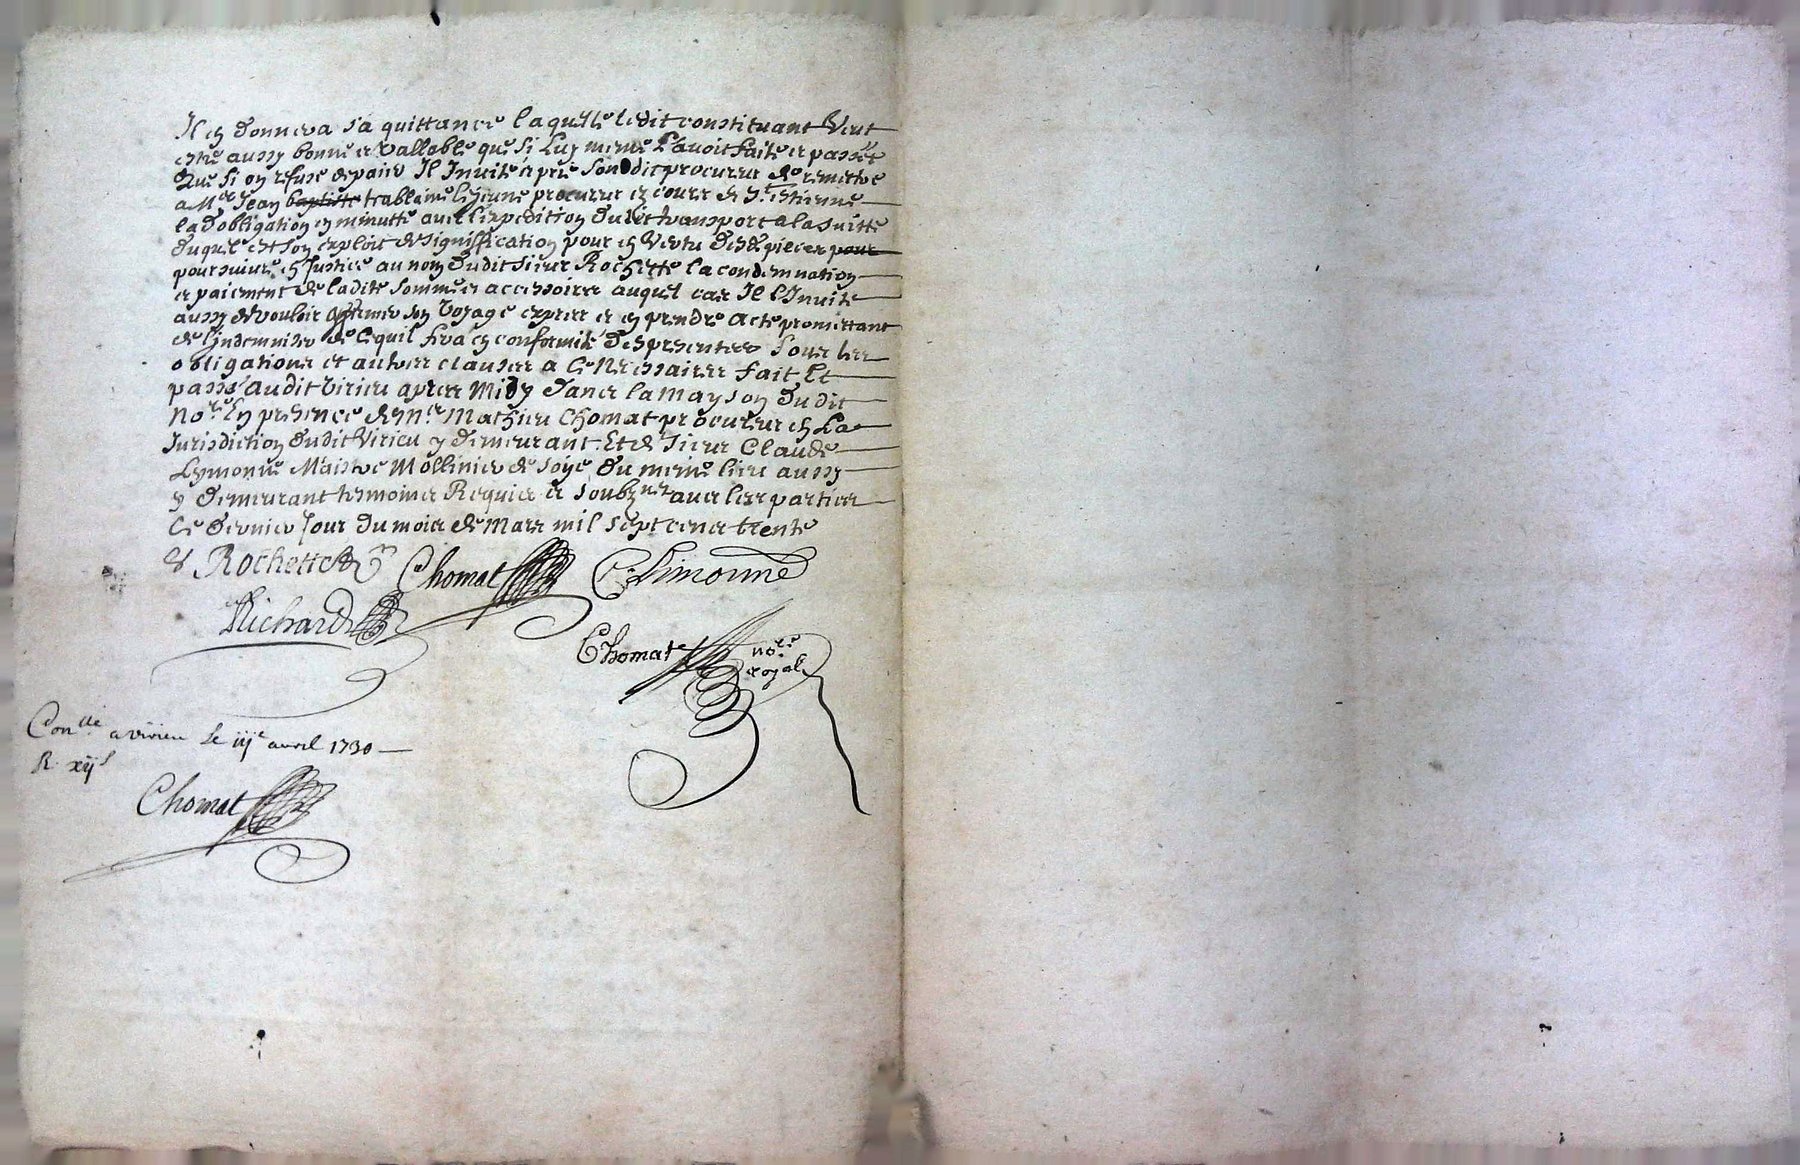 Il en donnera sa quittance laquelle ledit constituant veut
estre aussy bonne et vallable que si luy meme l'avoit faite et passée
Que si on refuse de paier Il Invite et prie son dit procureur de remettre
a Mer Jean baptiste trablaine le Jeune procureur ez cours de St. estienne
la d'obligation en minutte avec l'expedition dudit transport a la suitte
duquel est son exploit de signiffication pour en vertu desd pieces pour
poursuivre en Justice au nom dudit sieur Rochette la condemnation
et paiement de ladite somme et accessoires auquel cas Il l'Invite
aussy de vouloir affirmer son voyage expres et en prendre acte promettant
de l'indemniser de ce quil fera en conformité des presentes sous les
obligations et autres clauses a ce necessaires fait Et
passé audit virieu apres Midy dans la mayson dudit
Nore. En presence de mre. Mathieu Chomat procureur en La
Jurisdiction dudit Virieu y demeurant. Et de sieur Claude
Lymonne Maistre Mollinier de soye du meme lieu aussy
y demeurant tesmoins Requis et soubznes avec les parties
Ce dernier Jour du mois de Mars mil sept cens trente
Rochette Chomat C. Limonne
Richard
Chomat nore.
royal
Conlle a virieu le iije avril 1730
R. xijs
Chomat